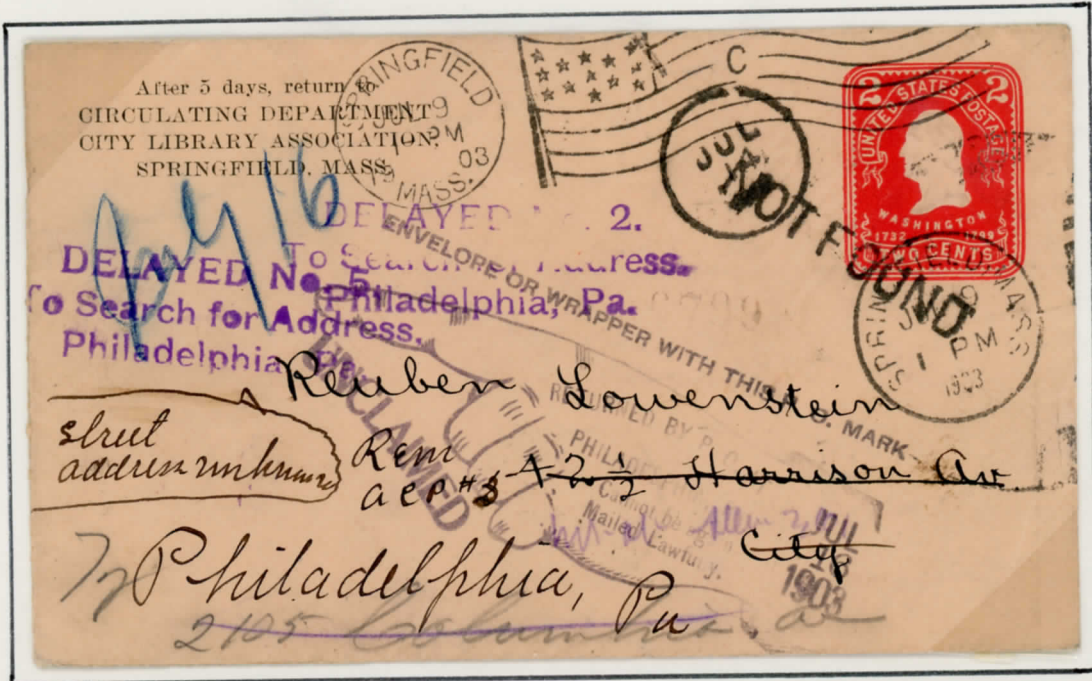 After 5 days, return to
CIRCULATING DEPARTMENT
CITY LIBRARY ASSOCIATION,
SPRINGFIELD, MASS.
SPRINGFIELD
JUN 9
1 PM
19 03
MASS.
C
JUL
NOT FOUND.
2 UNITED STATES POSTAGE 2
WASHINGTON
1732 1799
TWO CENTS
SPRINGFIELD, MASS
9
1 PM
1903
July 16
DELAYED No. 2.
To Search for Address.
Philadelphia, Pa.
DELAYED No. 5.
To Search for Address.
Philadelphia, Pa.
ENVELOPE OR WRAPPER WITH THIS MARK
UNCLAIMED
RETURNED BY
Cannot be
Mailed Lawfully.
Reuben Lowenstein
street
address unknown
Rem
42 1/2 Harrison Av
City
Philadelphia, Pa
Try
2105 Columbia av
JUL
1903